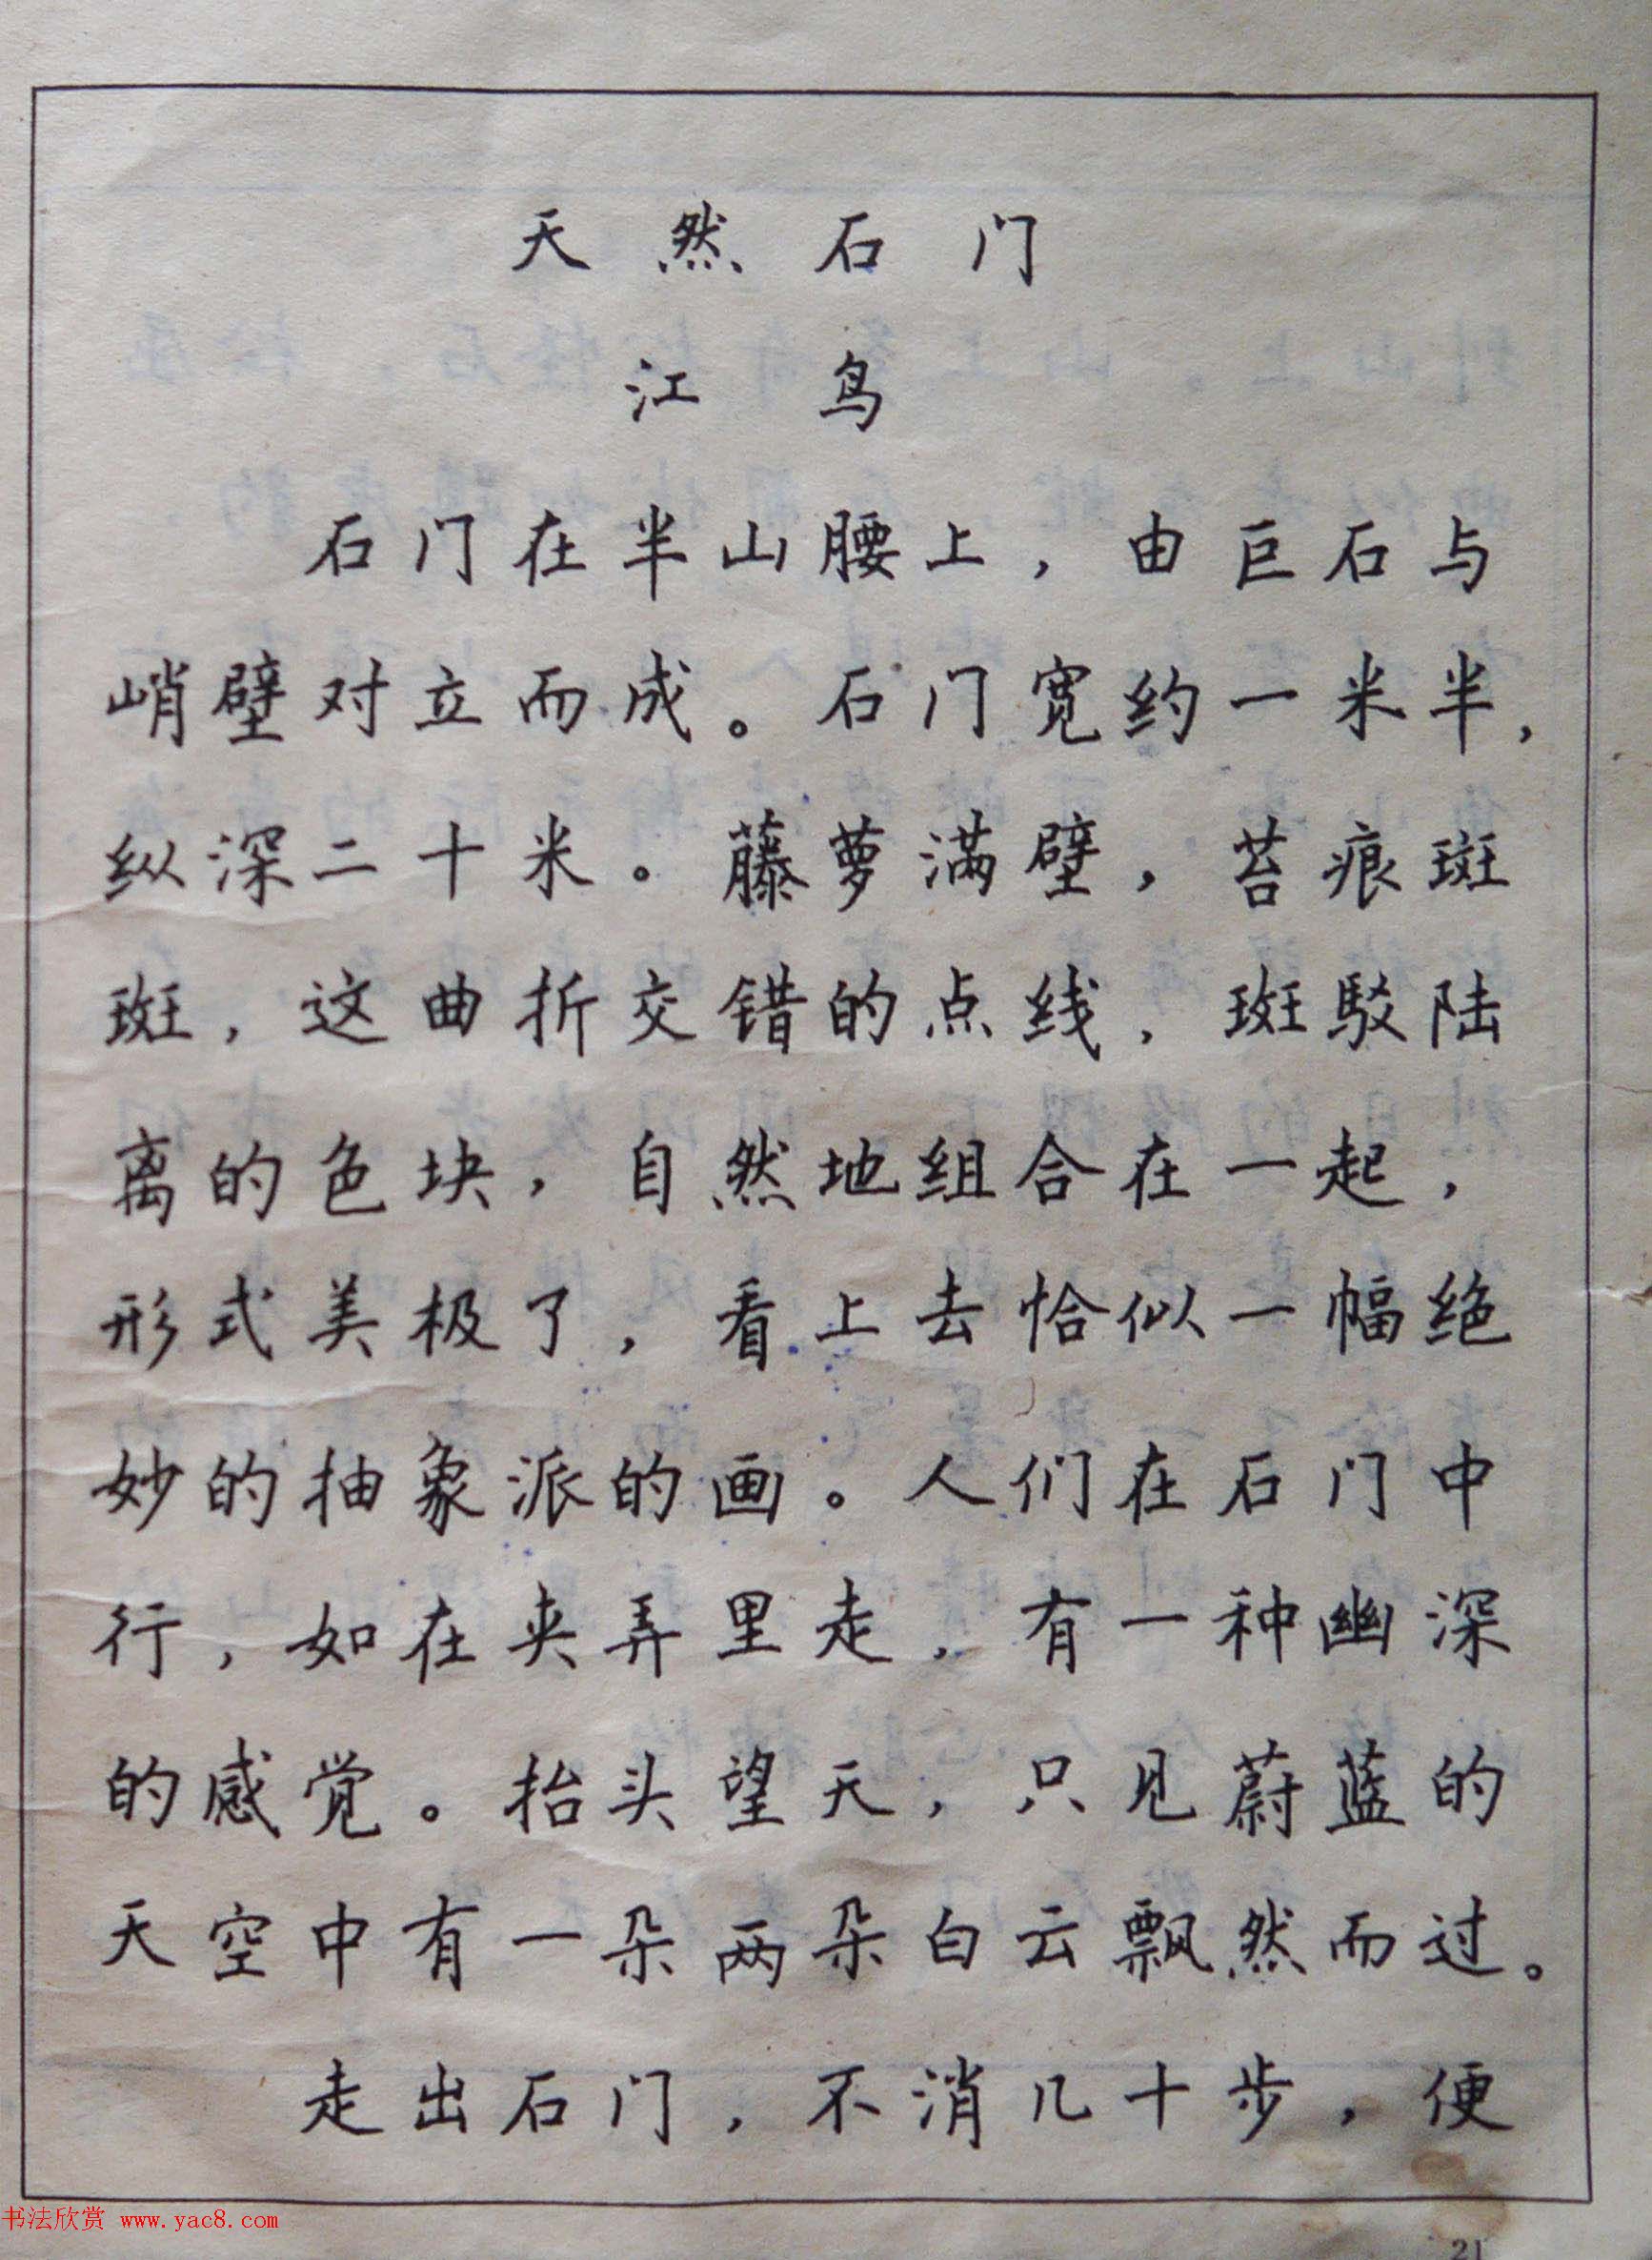 天然石门
江鸟
石门在半山腰上，由巨石与
峭壁对立而成。石门宽约一米半，
纵深二十米。藤萝满壁，苔痕斑
斑，这曲折交错的点线，斑駁陆
离的色块，自然地组合在一起，
形式美极了，看上去恰似一幅绝
妙的抽象派的画。人们在石门中
行，如在夹弄里走，有一种幽深
的感觉。抬头望天，只见蔚蓝的
天空中有一朵两朵白云飘然而过。
走出石门，不消几十步，便
书法欣赏 www.yac8.com
21